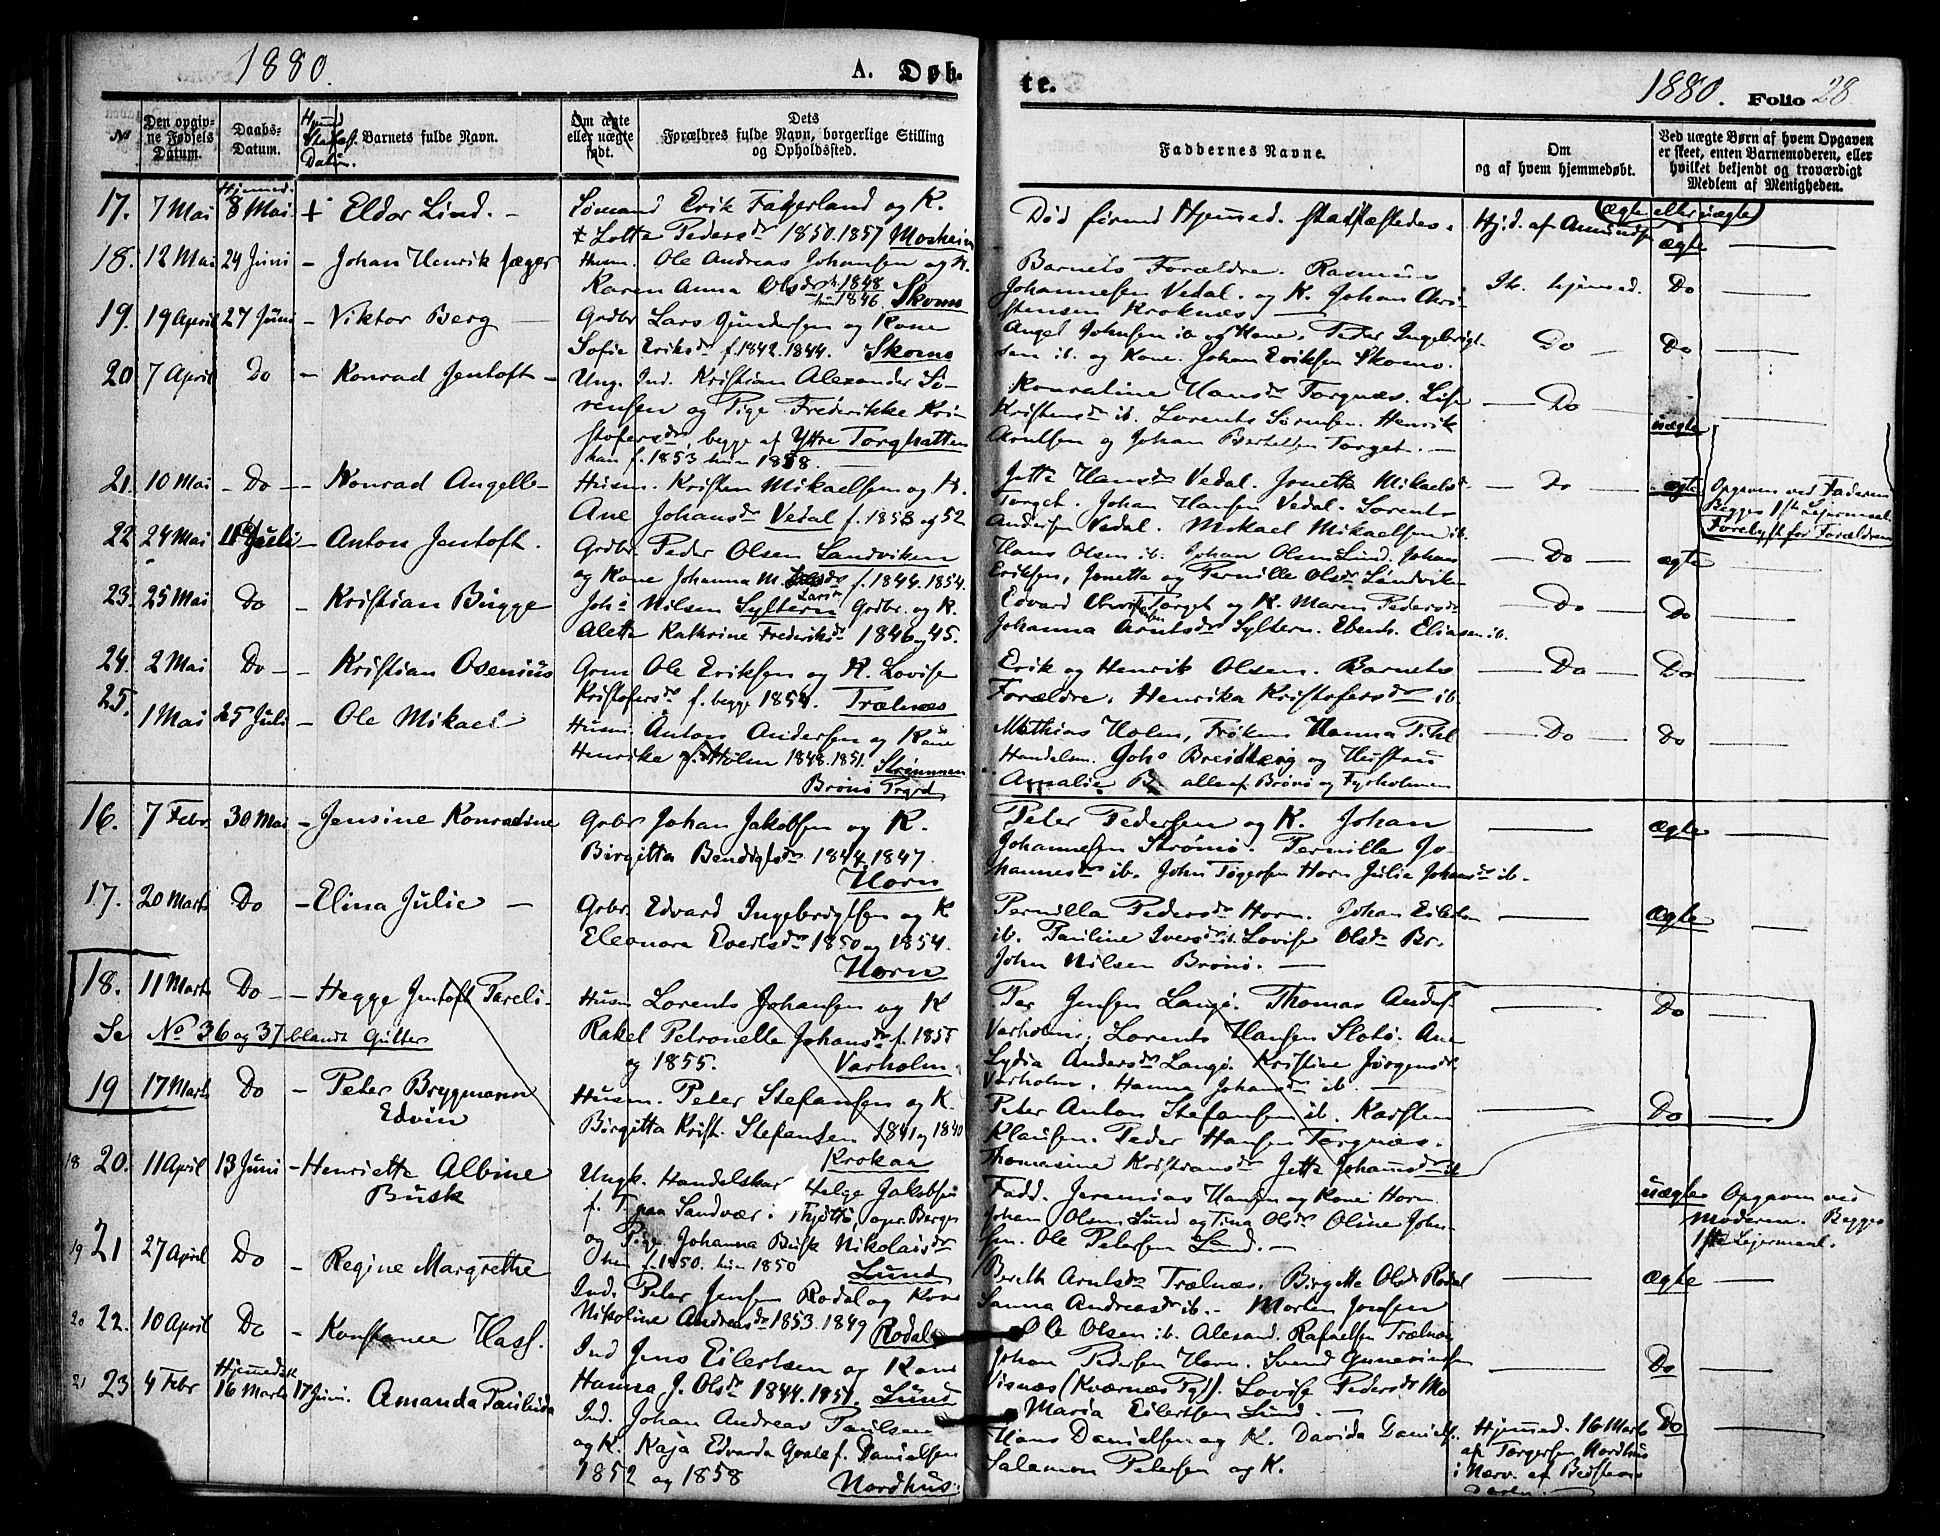 1880.
A. Døb-
te.
1880. Folio 28
№
Den opgivne Fødsels Datum.
Daabs-Datum.
Hjemd Stadfæst. Datum
Barnets fulde Navn.
Om ægte eller uægte født.
Dets Forældres fulde Navn, borgerlige Stilling og Opholdssted.
Faddernes Navne.
Om og af hvem hjemmedøbt.
Ved uægte Børn af hvem Opgaven er skeet, enten Barnemoderen, eller hvilket bekjendt og troværdigt Medlem af Menigheden.
ægte eller uægte
17. 7 Mai Hjemmed. 8 Mai + Eldor Lind. -
Sømand Erik Fagerland og K.
+ Lotte Pedersdr 1850. 1857 Mosheim
Død førend Hjemmed. stadfæstedes.
Hj.d. af Amundsen
ægte
18. 12 Mai 24 Juni - Johan Henrik Jæger
Husm. Ole Andreas Johansen og K.
Karen Anna Olsdr h. 1848 hun 1846. Skomo
Barnets Forældre. Rasmus
Johannesen Vedal. og K. Johan Chri-
stensen Kroknæs.
Ik. hjemmed.
Do
19. 19 April 27 Juni - Viktor Berg
Grdbr Lars Gundersen og Kone
Sofie Eriksdr f. 1842. 1844. Skomo
Anget Johnsen ib og Kone. Peder Ingebrigt-
sen ib. og Kone. Johan Eriksen Skomo.
Do
Do
20 7 April Do - Konrad Jentoft -
Ung. Ind. Kristian Alexander Sö-
rensen og Pige Frederikke Kri-
stofersdr, begge af Yttre Torghatten
han f. 1853 hun 1858.
Konradine Hansdr Torgnæs. Lise
Kristensdr ib. Lorents Sörensen. Henrik
Arntsen og Johan Bertelsen Torget.
Do
uægte
Opgaven ved Faderen
Begges 1ste Leiermaal
21. 10 Mai - Do - Konrad Angell -
Husm. Kristen Mikaelsen og K.
Ane Johansdr Vedal f. 1853 og 52
Jette Hansdr Vedal. Jonetta Mikaelsdr
Torget. Johan Hansen Vedal. Lorents
Andersen Vedal. Mikael Mikaelsen ib.
Do
ægte
22 24 Mai 11 Juli - Anton Jentoft.
Grdbr. Peder Olsen Sandviken
og Kone Johanna M. Larsdr f. 1844. 1854.
Hans Olsen ib. Johan Olsen Lund, Johan
Eriksen, Jonetta og Pernille Olsdr Sandvik-
Do
ægte
23. 25 Mai Do - Kristian Bugge
Johs Nilsen Syltern Grdbr. og K.
Aletta Kathrine Frederiksdr 1846 og 45.
Edvard Torget og K. Maren Pedersdr
Johanna Arntsdr Syltern. Ebenh. Eliasen ib.
Do
Do
24. 2 Mai Do - Kristian Osenius
Grm Ole Eriksen og K. Lovise
Kristofersdr f. begge 1854. Trælnæs
Erik og Henrik Olsen. Barnets
Forældre. Henrika Kristofersdr ib.
Do
Do
25. 1 Mai 25 Juli - Ole Mikael
Husm. Anton Andersen og Kone
Henrike Holm 1848. 1851. Strømmen
Brönö Prgrd
Mathias Holm, Frøken Hanna Pihl
Handelsm. Johs Breidberg og Hustru
Amalie B alle af Brönö og Tyrholmen
Do
Do
16. 7 Febr. 30 Mai - Jensine Konradine
Grbr Johan Jakobsen og K.
Birgitta Bendigtsdr 1844. 1847.
Horn
Peter Pedersen og K. Johan
Johannesen Strömö. Pernille Jo-
hannesdr ib. John Tögersen Horn Julie Johansdr ib.
ægte
17. 20 Marts Do - Elina Julie -
Grbr. Edvard Ingebrigtsen og K
Eleonora Evertsdr 1850 og 1854.
Horn
Pernilla Pedersdr Horn. Johan Eilertsen
ib. Pauline Iversdr ib. Lovise Olsdr Br.
John Nilsen Brönö.
ægte
18. 11 Marts Do - Hegge Jentoft Pareli-
Husm Lorents Johansen og K
Rakel Petronelle Johansdr f. 1855
og 1855. Varholm.
Per Jensen Langö. Thomas Anders.
Varholm, Lorents Hansen Slotö. Ane
Lydia Andersdr Langö. Kristine Jörgensdr
Varholm. Hanna Johansdr ib.
Do
Se No 36 og 37 blandt Gutter
19 17 Marts Do - Peter Bryggmann
Edvin
Husm. Peter Stefansen og K.
Birgitta Krist. Stefansen 1841 og 1840
Krokaa
Peter Anton Stefansen ib. Karsten
Klausen. Peder Hansen Torgnæs.
Thomasine Kristiansdr Jetta Johansdr ib
Do
18 20. 11 April 13 Juni - Henriette Albine
Busk
Ungk. Handelskar Helge Jakobsen
f. T. paa Sandvær i Thjöttö, opr. Berger
og Pige Johanna Busk Nikolaisdr
han f. 1850. hun 1850 Lund
Fadd. Jeremias Hansen og Kone Horn
Johan Olsen Lund og Tina Olsdr Oline John-
sen. Ole Petersen Lund.
uægte Opgaven ved
Moderen. Begges
1ste Lejermaal.
19 21 27 April Do - Regine Margrethe
Ind. Peter Jensen Rodal og Kone
Nikoline Andreasdr 1853. 1849 Rodal
Bereth Arntsdr Trælnæs. Birgitte Olsdr Rodal
Sanna Andreasdr ib. - Morten Jensen
Ole Olsen ib. Alexand. Rafaelsen Trælnæs
ægte
20 22. 10 April Do - Konstance Hass.
Ind Jens Eilertsen og Kone
Hanna J. Olsdr 1844. 1851. Lund
Johan Pedersen Horn. Svend
Visnæs (Kværnæs Pgd). Lovise Pedersdr Mo
Maria Eilertsen Lund.
Do
21 23 4 Febr Hjemmedöbt 16 Marts 17 Juni. Amanda Paulida
Ind. Johan Andreas Paulsen
og K. Kaja Edvarda Danielsen
1852 og 1858 Nordhus.
Hans Danielsen og K. Davida Daniels.
Salemon Petersen og K.
Hjemmed. 16 Marts
af Torgersen Nordhus
i Nærv. af Bedste-
Do